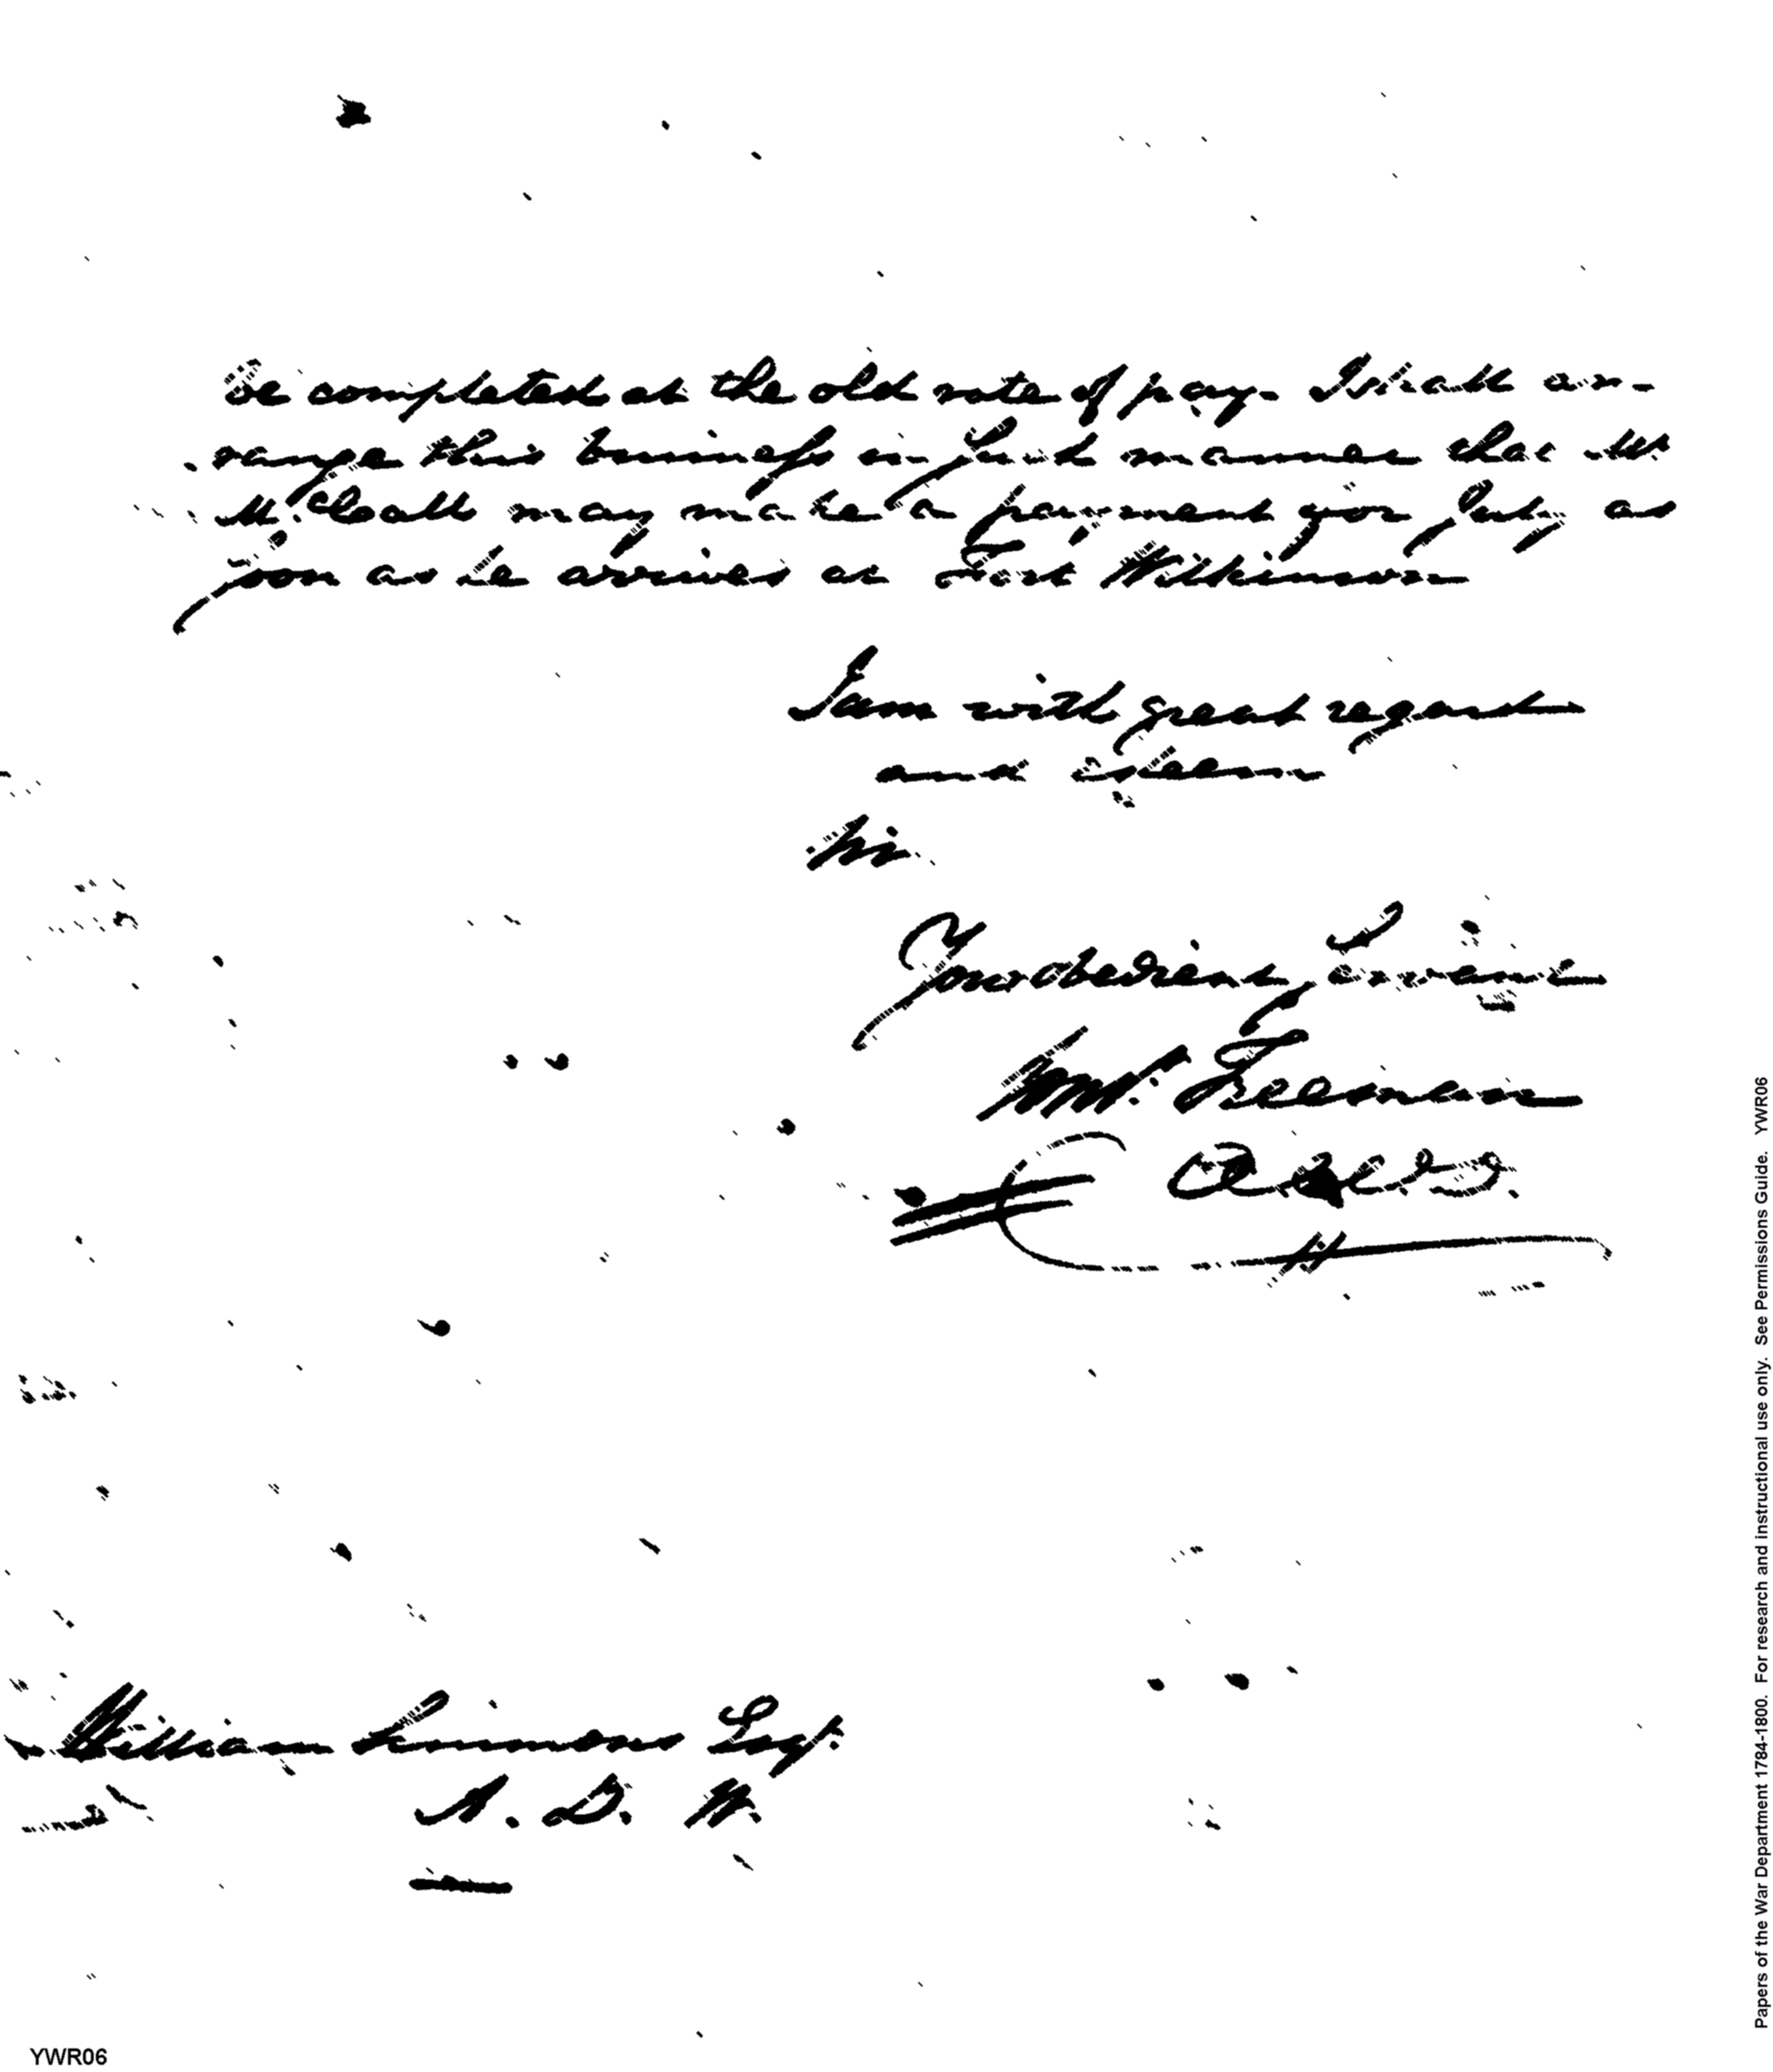 be completed at the old rate of pay. I shall ar-
range this business in such a manner that Mr
McCall may make a payment on
soon as he arrives at Fort Wilkinson
I am with great regard
and esteem
Sir
Your obedient Servant
W. Freeman
William Simmons Esqr.
A. D. W.
YWR06
Papers of the War Department 1784-1800. For research and instructional use only. See Permissions Guide. YWR06